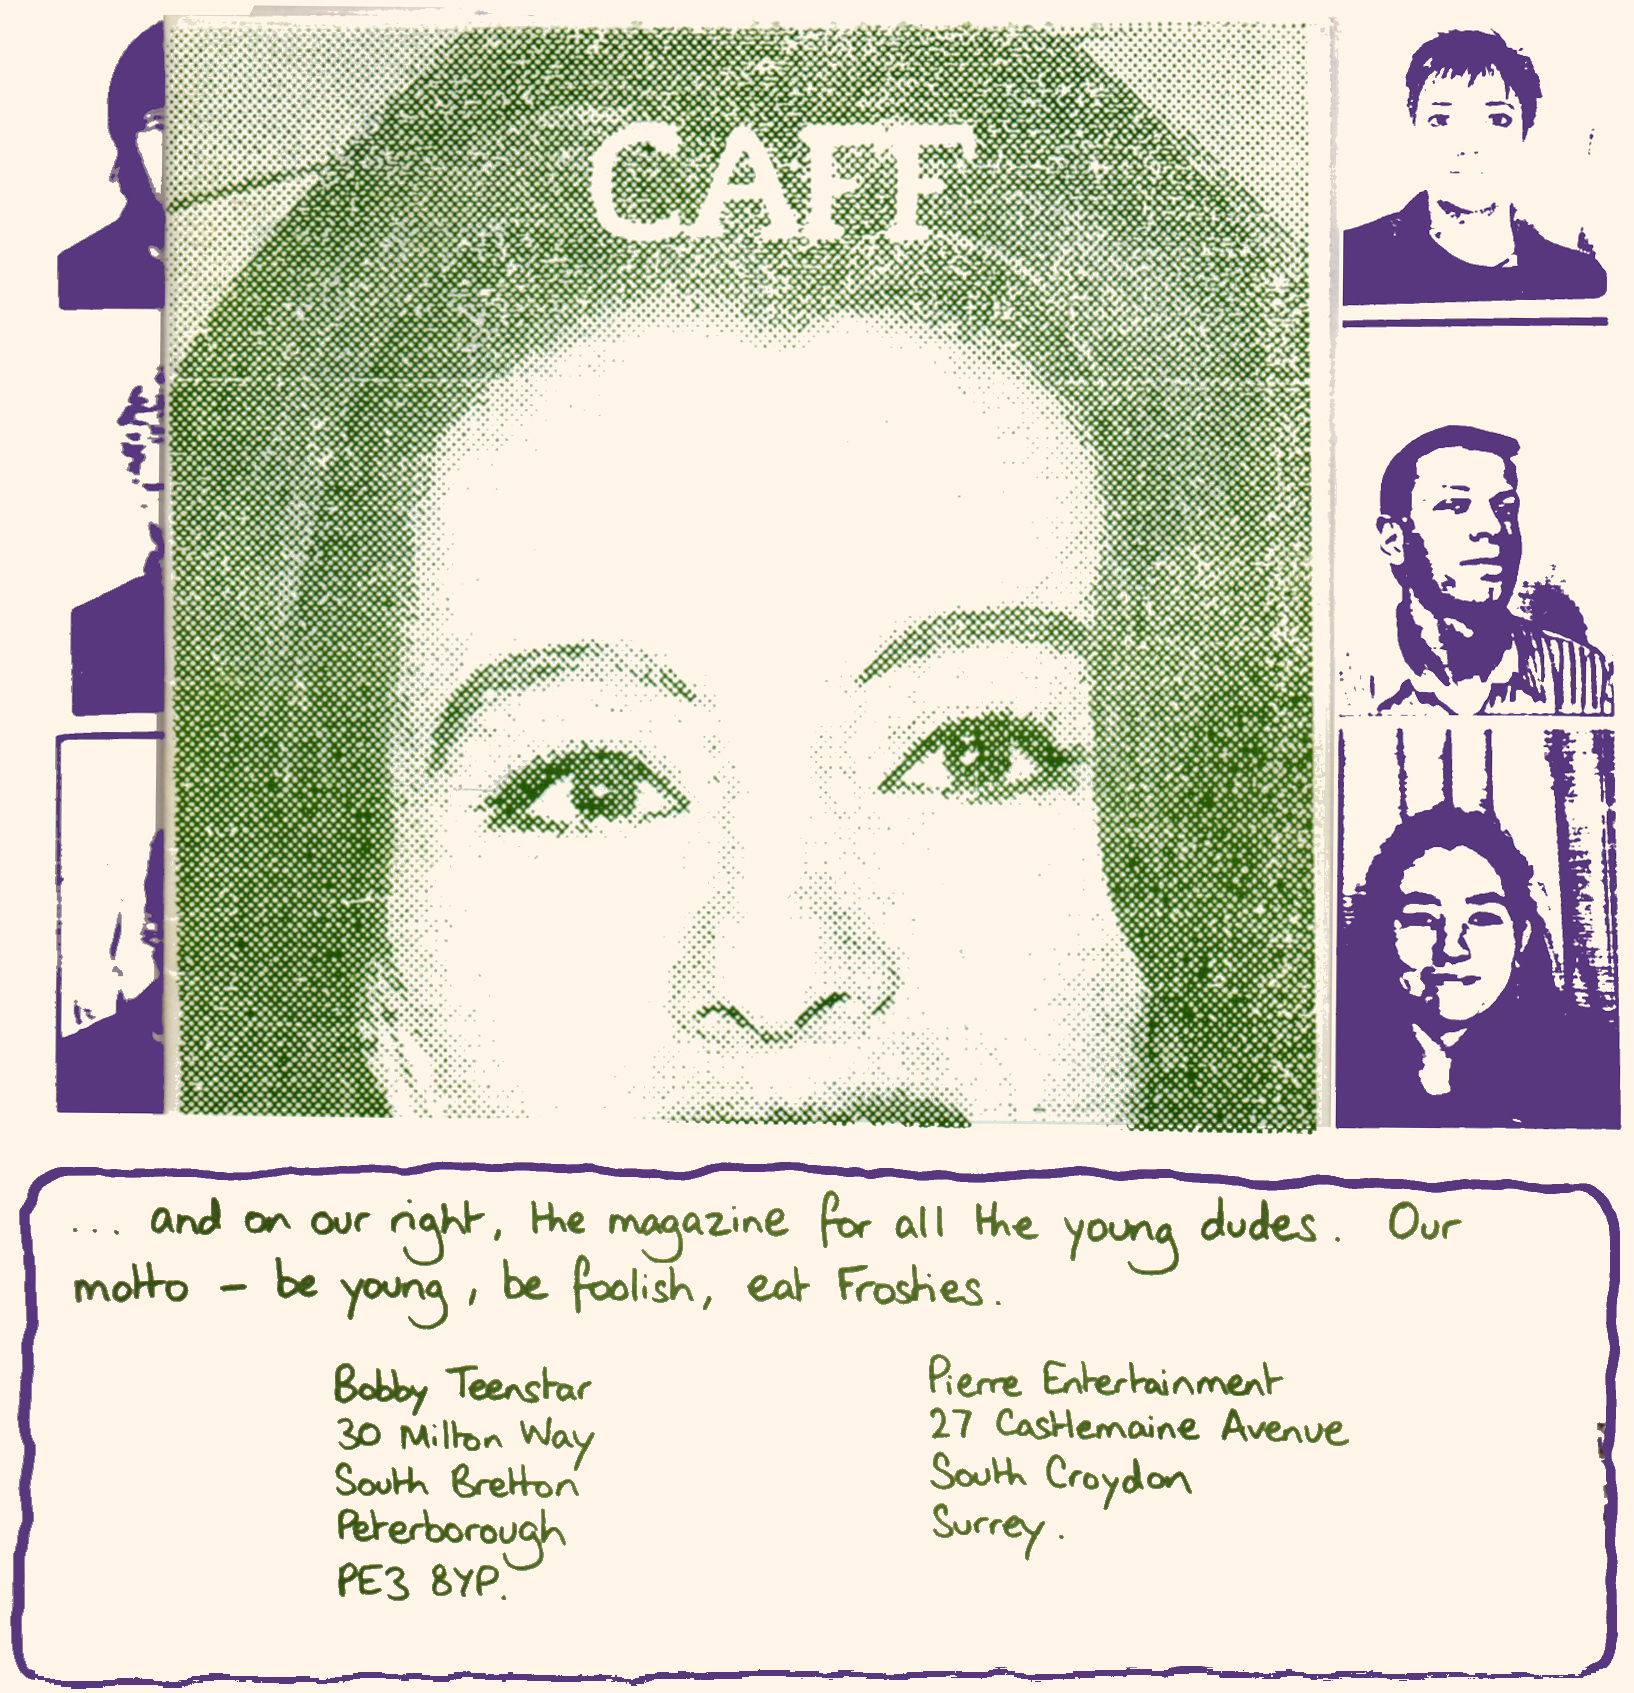 CAFF
... and on our right, the magazine for all the young dudes. Our
motto - be young, be foolish, eat Frosties.
Bobby Teenstar
30 Milton Way
South Bretton
Peterborough
PE3 8YP.
Pierre Entertainment
27 Castlemaine Avenue
South Croydon
Surrey.